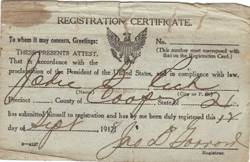 REGISTRATION CERTIFICATE.
To whom it may concern, Greetings:
No.
(This number must correspond with that on the Registration Card.)
THESE PRESENTS ATTEST,
That in accordance with the
proclamation of the President of the United States, and in compliance with law,
(Name)
Precinct County of Cooper, State of
has submitted himself to registration and has by me been duly registered this 12
day of Sept 1918